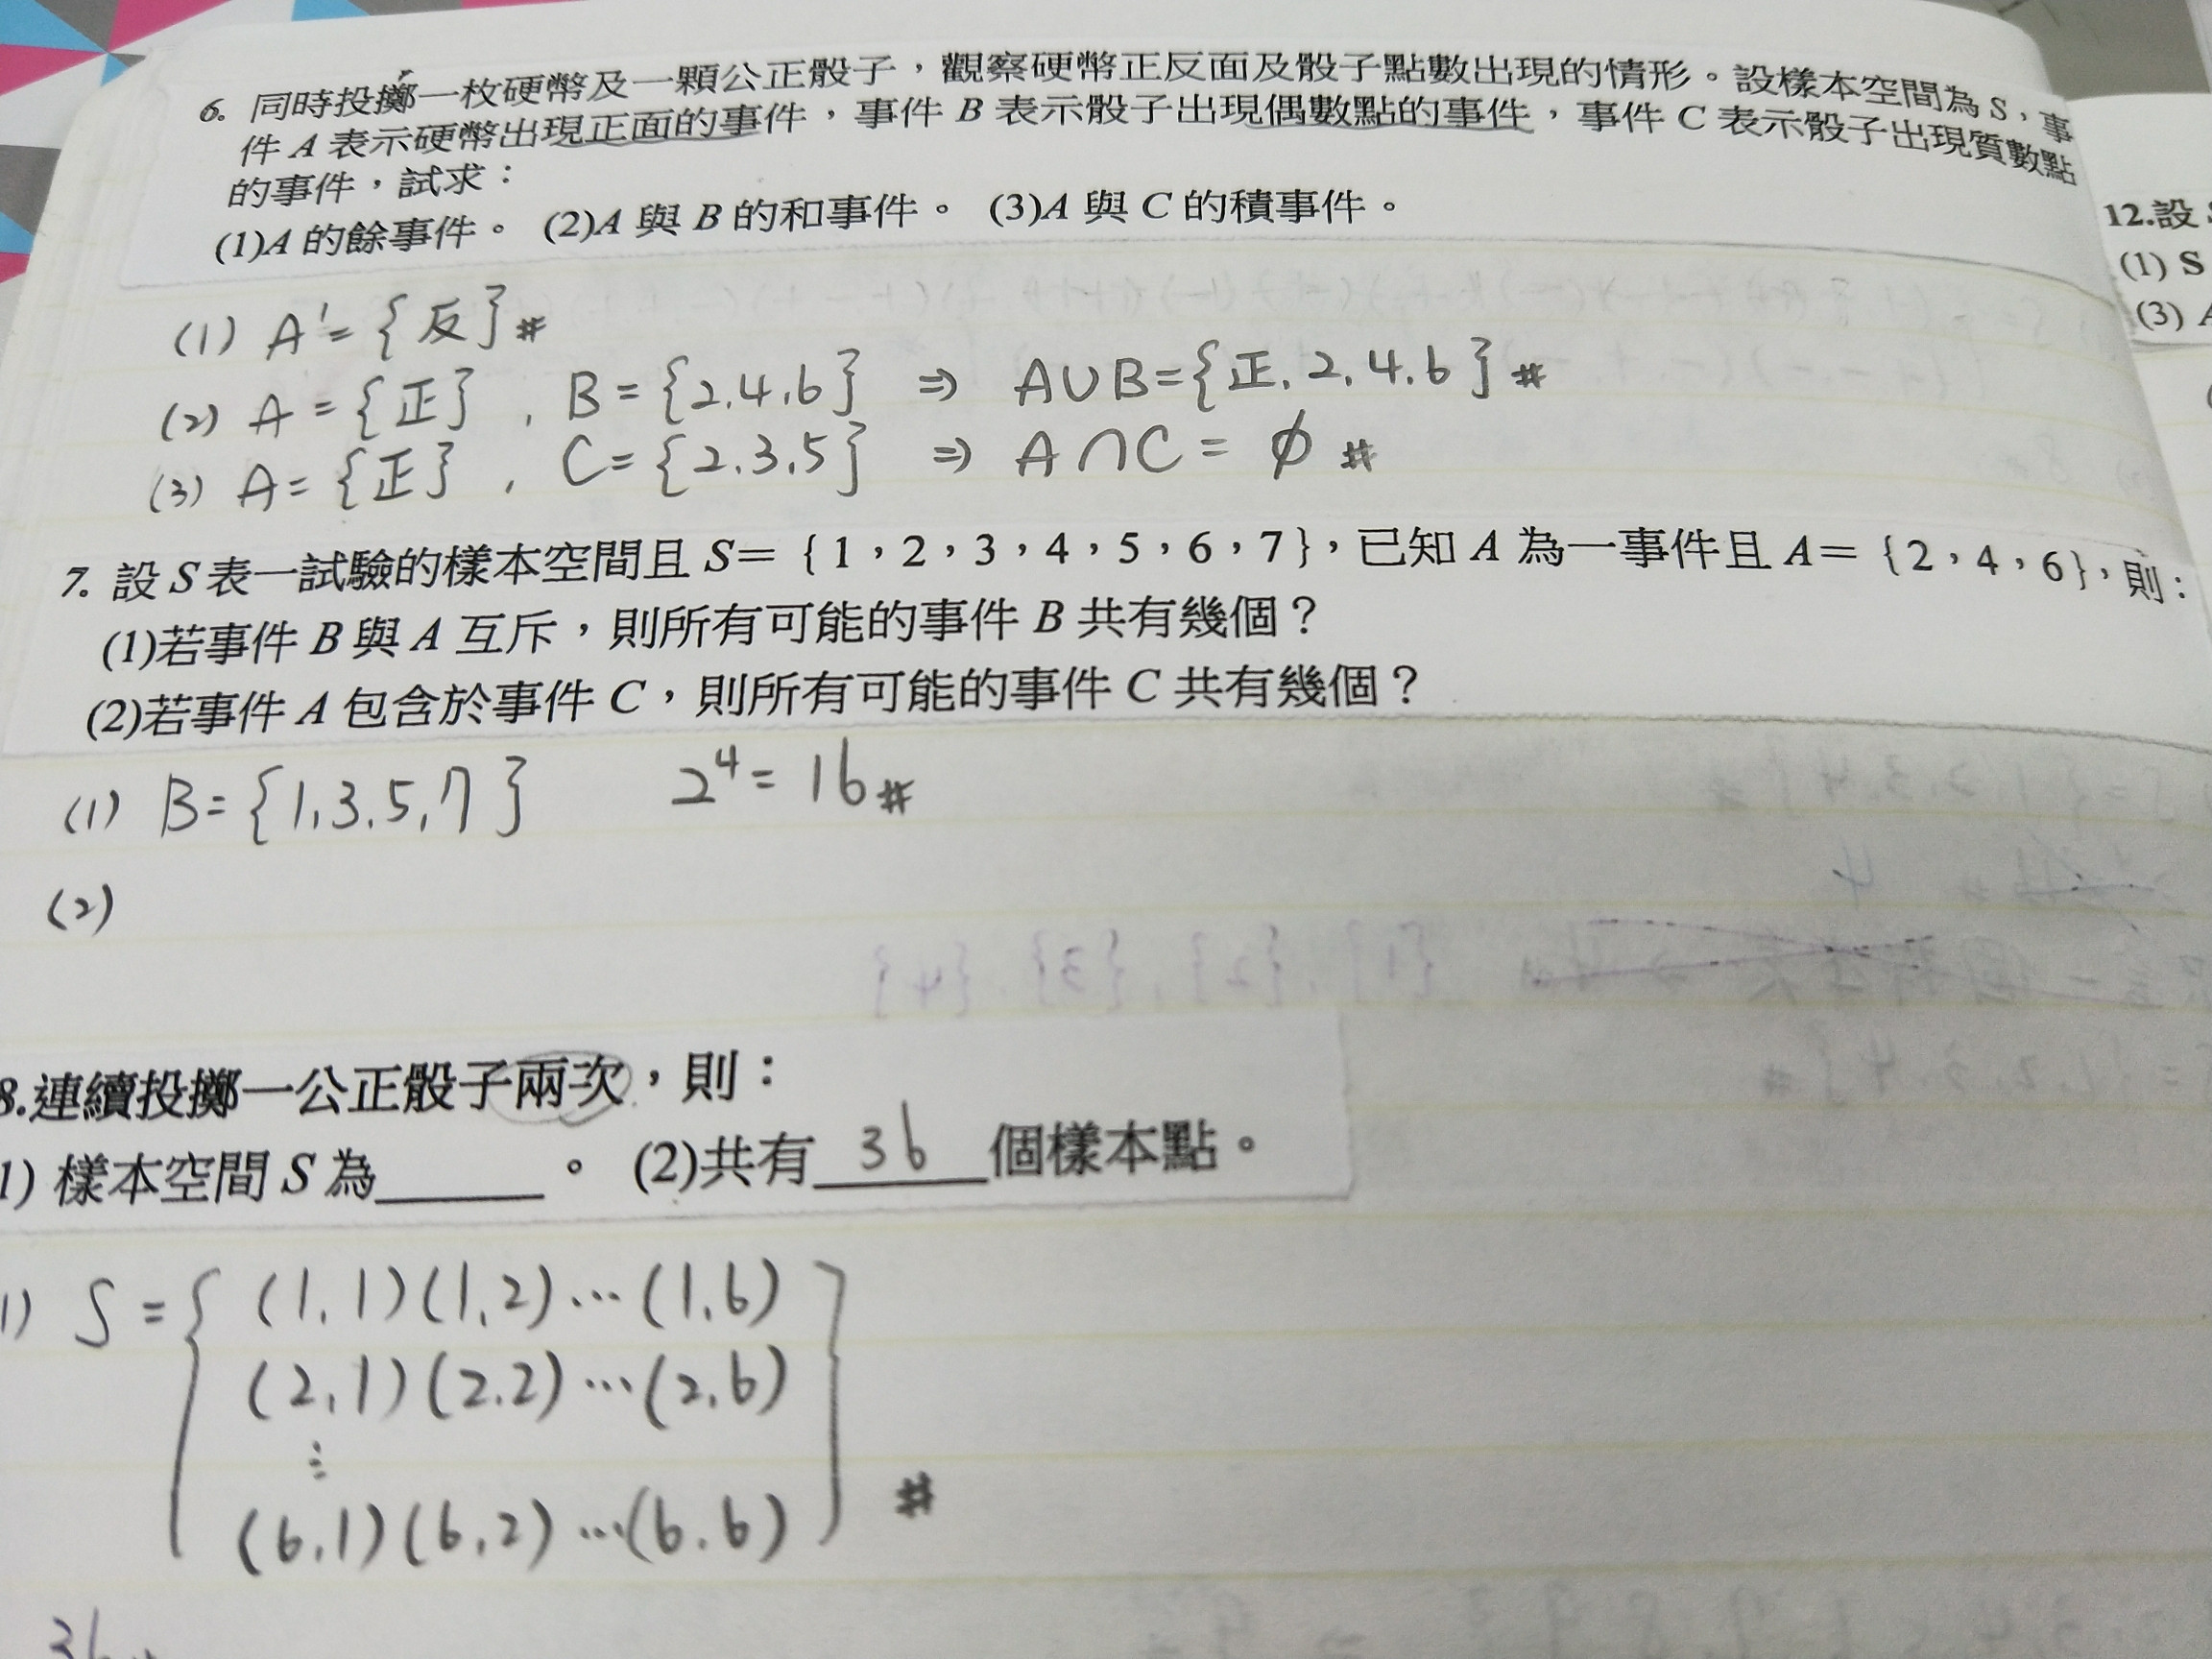 6. 同時投擲一枚硬幣及一顆公正骰子，觀察硬幣正反面及骰子點數出現的情形。設樣本空間為 S，事
件 A 表示硬幣出現正面的事件，事件 B 表示骰子出現偶數點的事件，事件 C 表示骰子出現質數點
的事件，試求：
(1)A 的餘事件。 (2)A 與 B 的和事件。 (3)A 與 C 的積事件。
(1) A'={反}#
(2) A={正} , B={2,4,6} ⇒ A∪B={正,2,4,6}#
(3) A={正} , C={2,3,5} ⇒ A∩C= ∅ #
7. 設 S 表一試驗的樣本空間且 S= {1，2，3，4，5，6，7}，已知 A 為一事件且 A= {2，4，6}，則：
(1)若事件 B 與 A 互斥，則所有可能的事件 B 共有幾個？
(2)若事件 A 包含於事件 C，則所有可能的事件 C 共有幾個？
(1) B={1,3,5,7} 2⁴=16#
(2)
8.連續投擲一公正骰子兩次，則：
1) 樣本空間 S 為______。 (2)共有 36 個樣本點。
1) S={ (1,1)(1,2)…(1,6)
(2,1)(2,2)…(2,6)
⋮
(6,1)(6,2)…(6,6) } #
36
12.設
(1) S
(3)